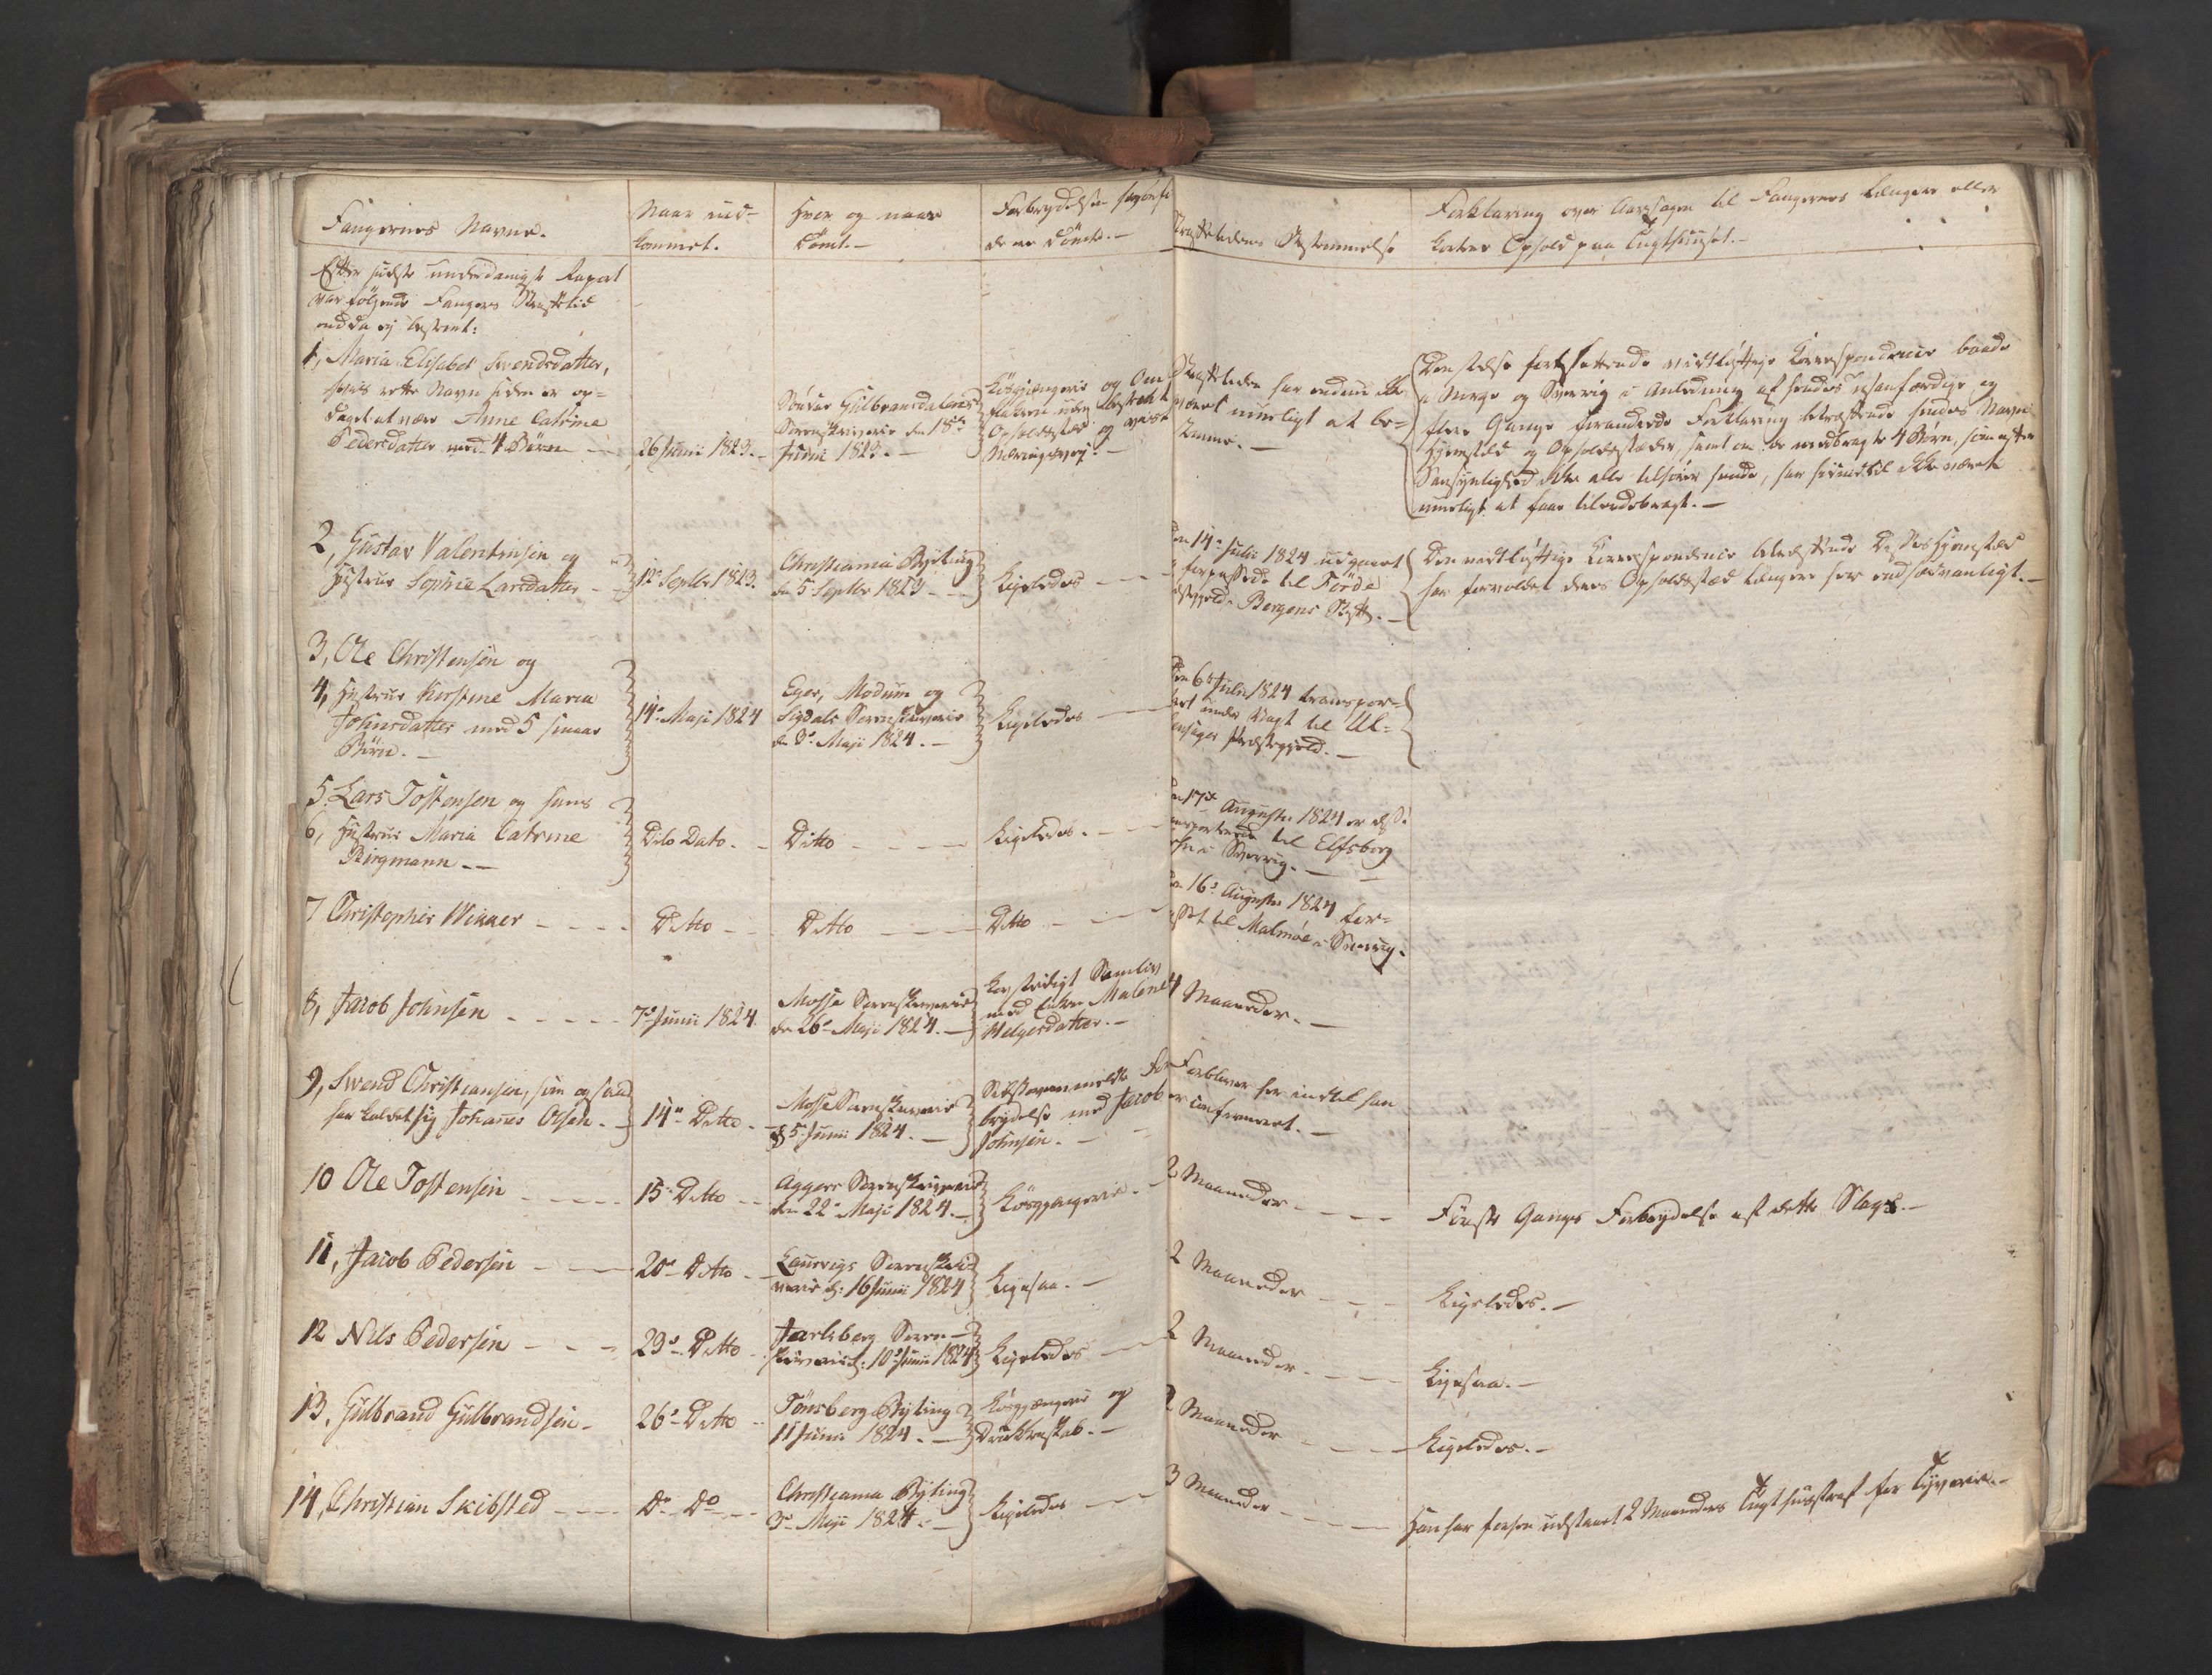 Fangernes Navne.
Naar ind-
kommet.
Hvor og naar
dømt.-
Forbrydelsen hvorfor
de ere dömte.-
Straffetidens Bestemmelse
Forklaring over Aarsagen til Fangernes længere eller
kortere Ophold paa Tugthuuset.-
Efter sidste underdanigste Raport
var følgende Fangers Straffetid
endda ej bestemt:
1, Maria Elisabet Svendsdatter,
hvis rette Navn siden er op-
daget at være Anne Catrine
Pedersdatter med 4 Börn
26 Junii 1823.
Søndre Gulbrandsdalens
Sorenskriverie den 18de
Junii 1823.-
Løsgjængerie og Om
flakken uden bestemt
Opholdssted og
Næringsvej.-
Straffetiden har endnu ikke
været mueligt at be-
stemme.-
Den stedse fortsættende vidtløftige Correspondence baade
i Norge og Sverrig i Anledning af hendes usanfærdige og
flere Gange forandrede Forklaring betræffende hendes Navn
Hjemsted og Opholdssteder, samt om de medbragte 4 Börn, som efter
Sansynlighed ikke alle tilhører hende, har hidindtil ikke været
mueligt at faae tilendebragt.-
2, Gustav Valentinsen og
Hustrue Sophie Larsdatter
12 Septbr. 1823.
Christiania Byting
den 5 Septbr 1823
Ligeledes
den 14de Julii 1824 udgaaet
forpassede til Förde
Præstegjeld i Bergens Stift.-
Den vidtløftige Correspondence betræffende Disses Hjemsted
har forvoldet deres Opholdssted længere her end sædvanligt.-
3, Ole Christensen og
4, Hustrue Kirstine Maria
Johnsdatter med 5 smaae
Börn.-
14de Maji 1824
Eger, Modum og
Sigdals Sorenskriverie
den 3die Maji 1824.-
Ligeledes
Den 6te Julii 1824 transpor-
teret under Vagt til Ul-
lensager Præstegjeld.-
5. Lars Tostensen og hans
6, Hustrue Maria Catrine
Birgmann.-
Dito Dato.
Ditto
Ligeledes.
den 17de Augusti 1824 er disse
transporterede til Elfsborg
Lehn i Sverrig.-
7 Christopher Wikner
Ditto
Ditto
Ditto
den 16de Augusti 1824 for-
passet til Malmøe i Sverrig.
8, Jacob Johnsen
7de Junii 1824.
Mosse Sorenskriverie
den 26de Maji 1824.-
Løsagtigt Samliv
med Enken Malene
Helgesdatter.-
4 Maaneder.-
9, Svend Christiansen, som ogsaa
har kaldet sig Johannes Olsen.-
14de Ditto.
Mosse Sorenskriverie
d: 5 Junii 1824.-
For
brydelse med Jacob
Johnsen.-
Forbliver her indtil han
er confirmeret.-
10 Ole Tostensen
15de Ditto
Aggers Sorenskriverie
den 22de Maji 1824.-
Lösgjængerie.
2 Maaneder
Förste Gangs Forbrydelse af dette Slags.-
11, Jacob Pedersen
20de Ditto
Laurvigs Sorenskri-
verie d: 16 Junii 1824
Ligesaa.-
2 Maaneder
Ligeledes.-
12 Nils Pedersen
23de Ditto
Jarlsberg Soren-
skriverie d: 10de Junii 1824
Ligeledes
2 Maaneder
Ligesaa.-
13, Gulbrand Gulbrandsen
26de Ditto
Tönsberg Byting
11 Junii 1824.-
Løsgjængerie og
Drukkenskab.-
2 Maaneder
Ligeledes.-
14, Christian Skibsted
Do Do
Christiania Byting
3de Maji 1824.-
Ligeledes
3 Maaneder
Han har forhen udstaaet 2 Maaneders Tugthuusstraf for Tyverie.-